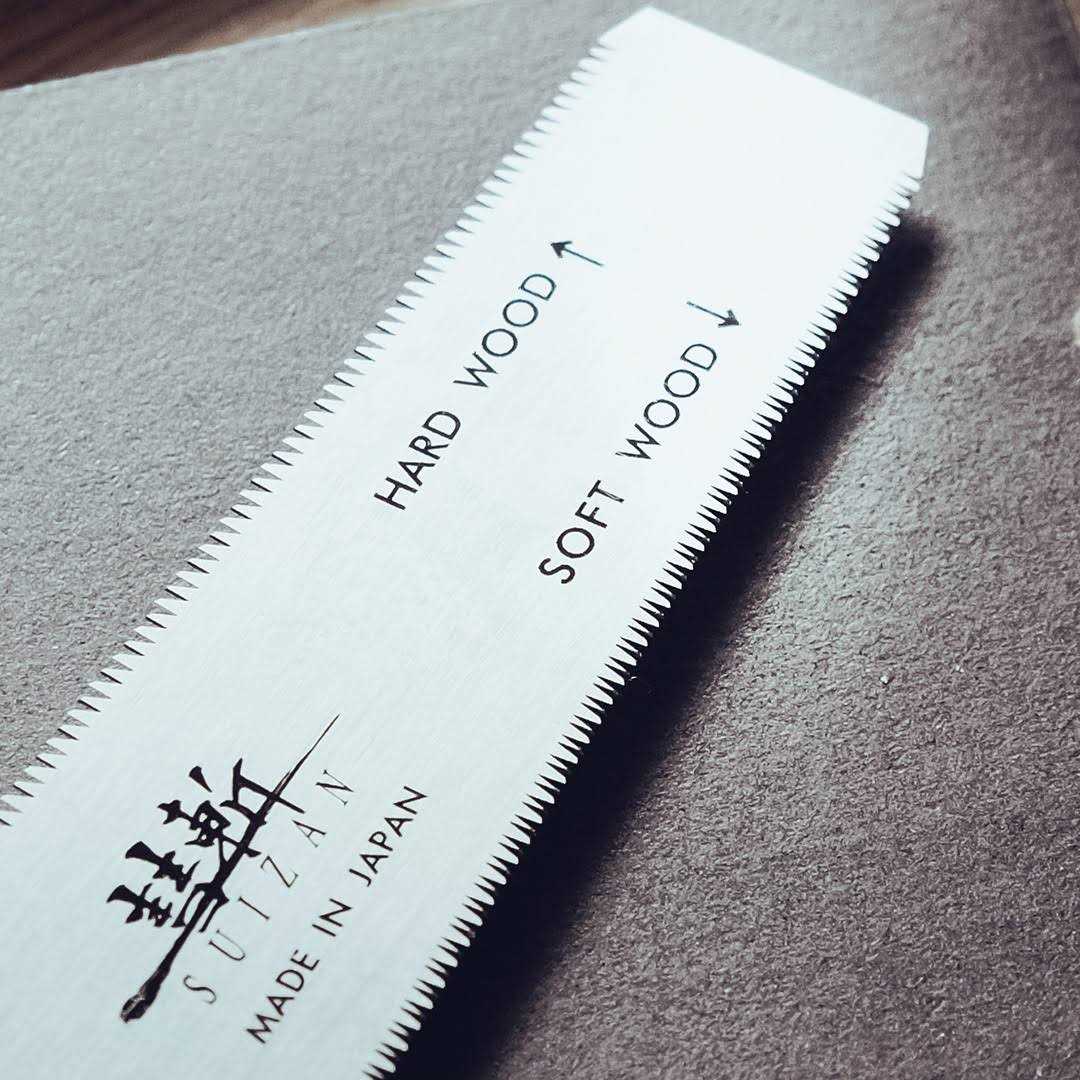 HARD WOOD ↑
SOFT WOOD ↓
SUIZAN
MADE IN JAPAN